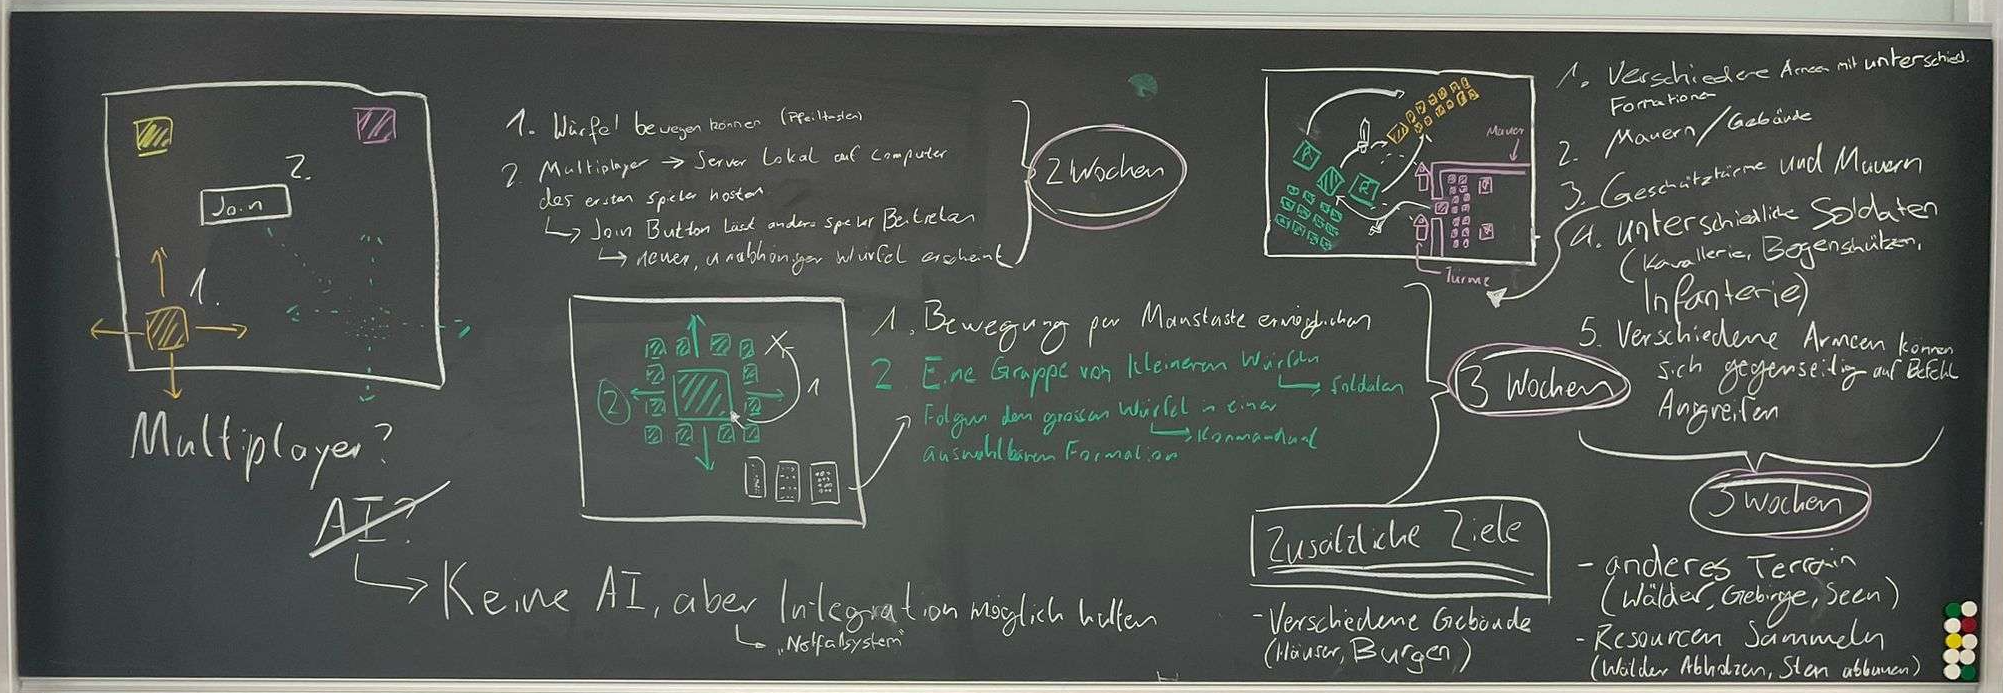 2.
Join
1.
Multiplayer?
AI?
Keine AI, aber Integration möglich halten
"Notfallsystem"
1. Würfel bewegen können (Pfeiltasten)
2. Multiplayer → Server Lokal auf Computer
des ersten spieler hosten
Join Button lässt andere spieler Beitreten
neuer, unabhöniger würfel erscheint
2 Wochen
2
1
1. Bewegung per Maustaste ermöglichen
2 Eine Gruppe von kleineren Würfeln
Soldaten
Folgen dem grossen Würfel in einer
Kommandant
auswählbaren Formation
3 Wochen
Mauer
Türme
1. Verschiedene Armeen mit unterschied.
Formationen
2. Mauern/Gebäude
3. Geschütztürme und Mauern
4. unterschiedliche Soldaten
(Kavallerie, Bogenschützen,
Infanterie)
5. Verschiedene Armeen können
sich gegenseitig auf Befehl
Angreifen
3 Wochen
Zusätzliche Ziele
- Verschiedene Gebäude
(Häuser, Burgen)
- anderes Terrain
(Wälder, Gebirge, Seen)
- Resourcen Sammeln
(Wälder Abholzen, Stein abbauen)